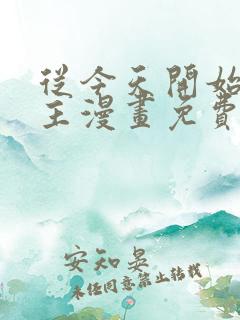 從今天開始
王漫畫免費
安知晏
未经同意禁止转载